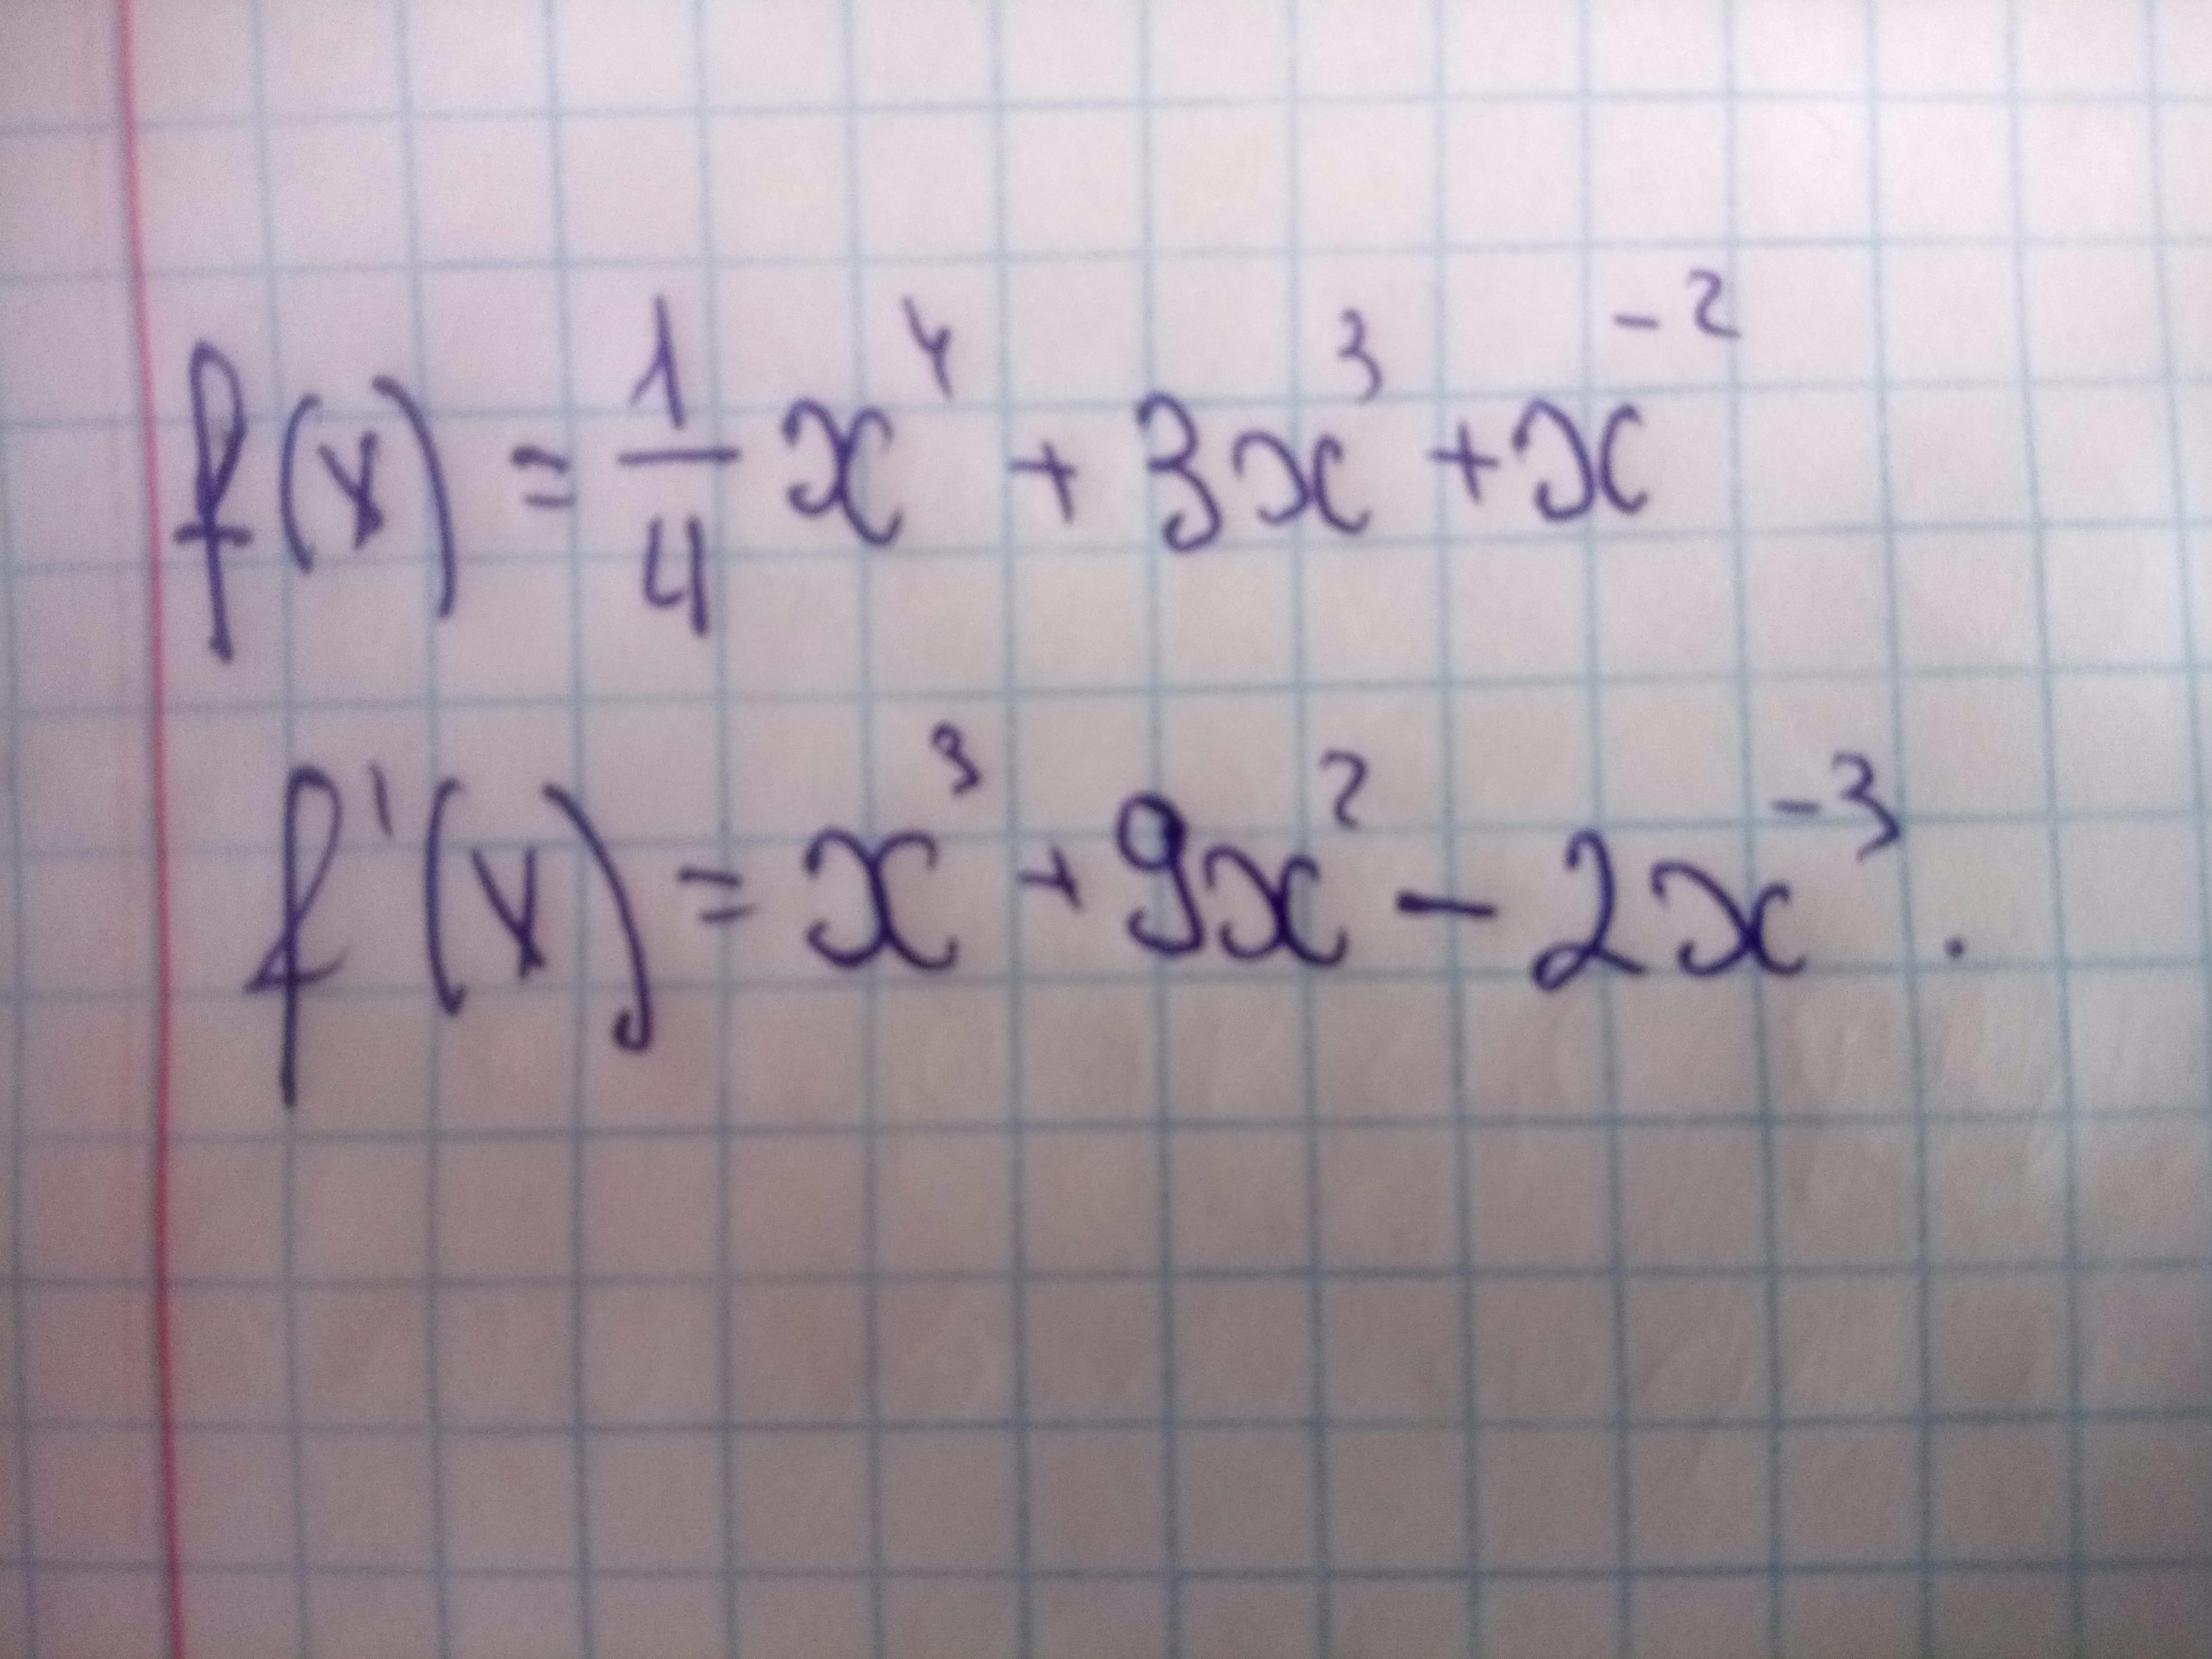 f(x) = 1/4 x⁴ + 3x³ + x⁻²
f'(x) = x³ + 9x² - 2x⁻³.